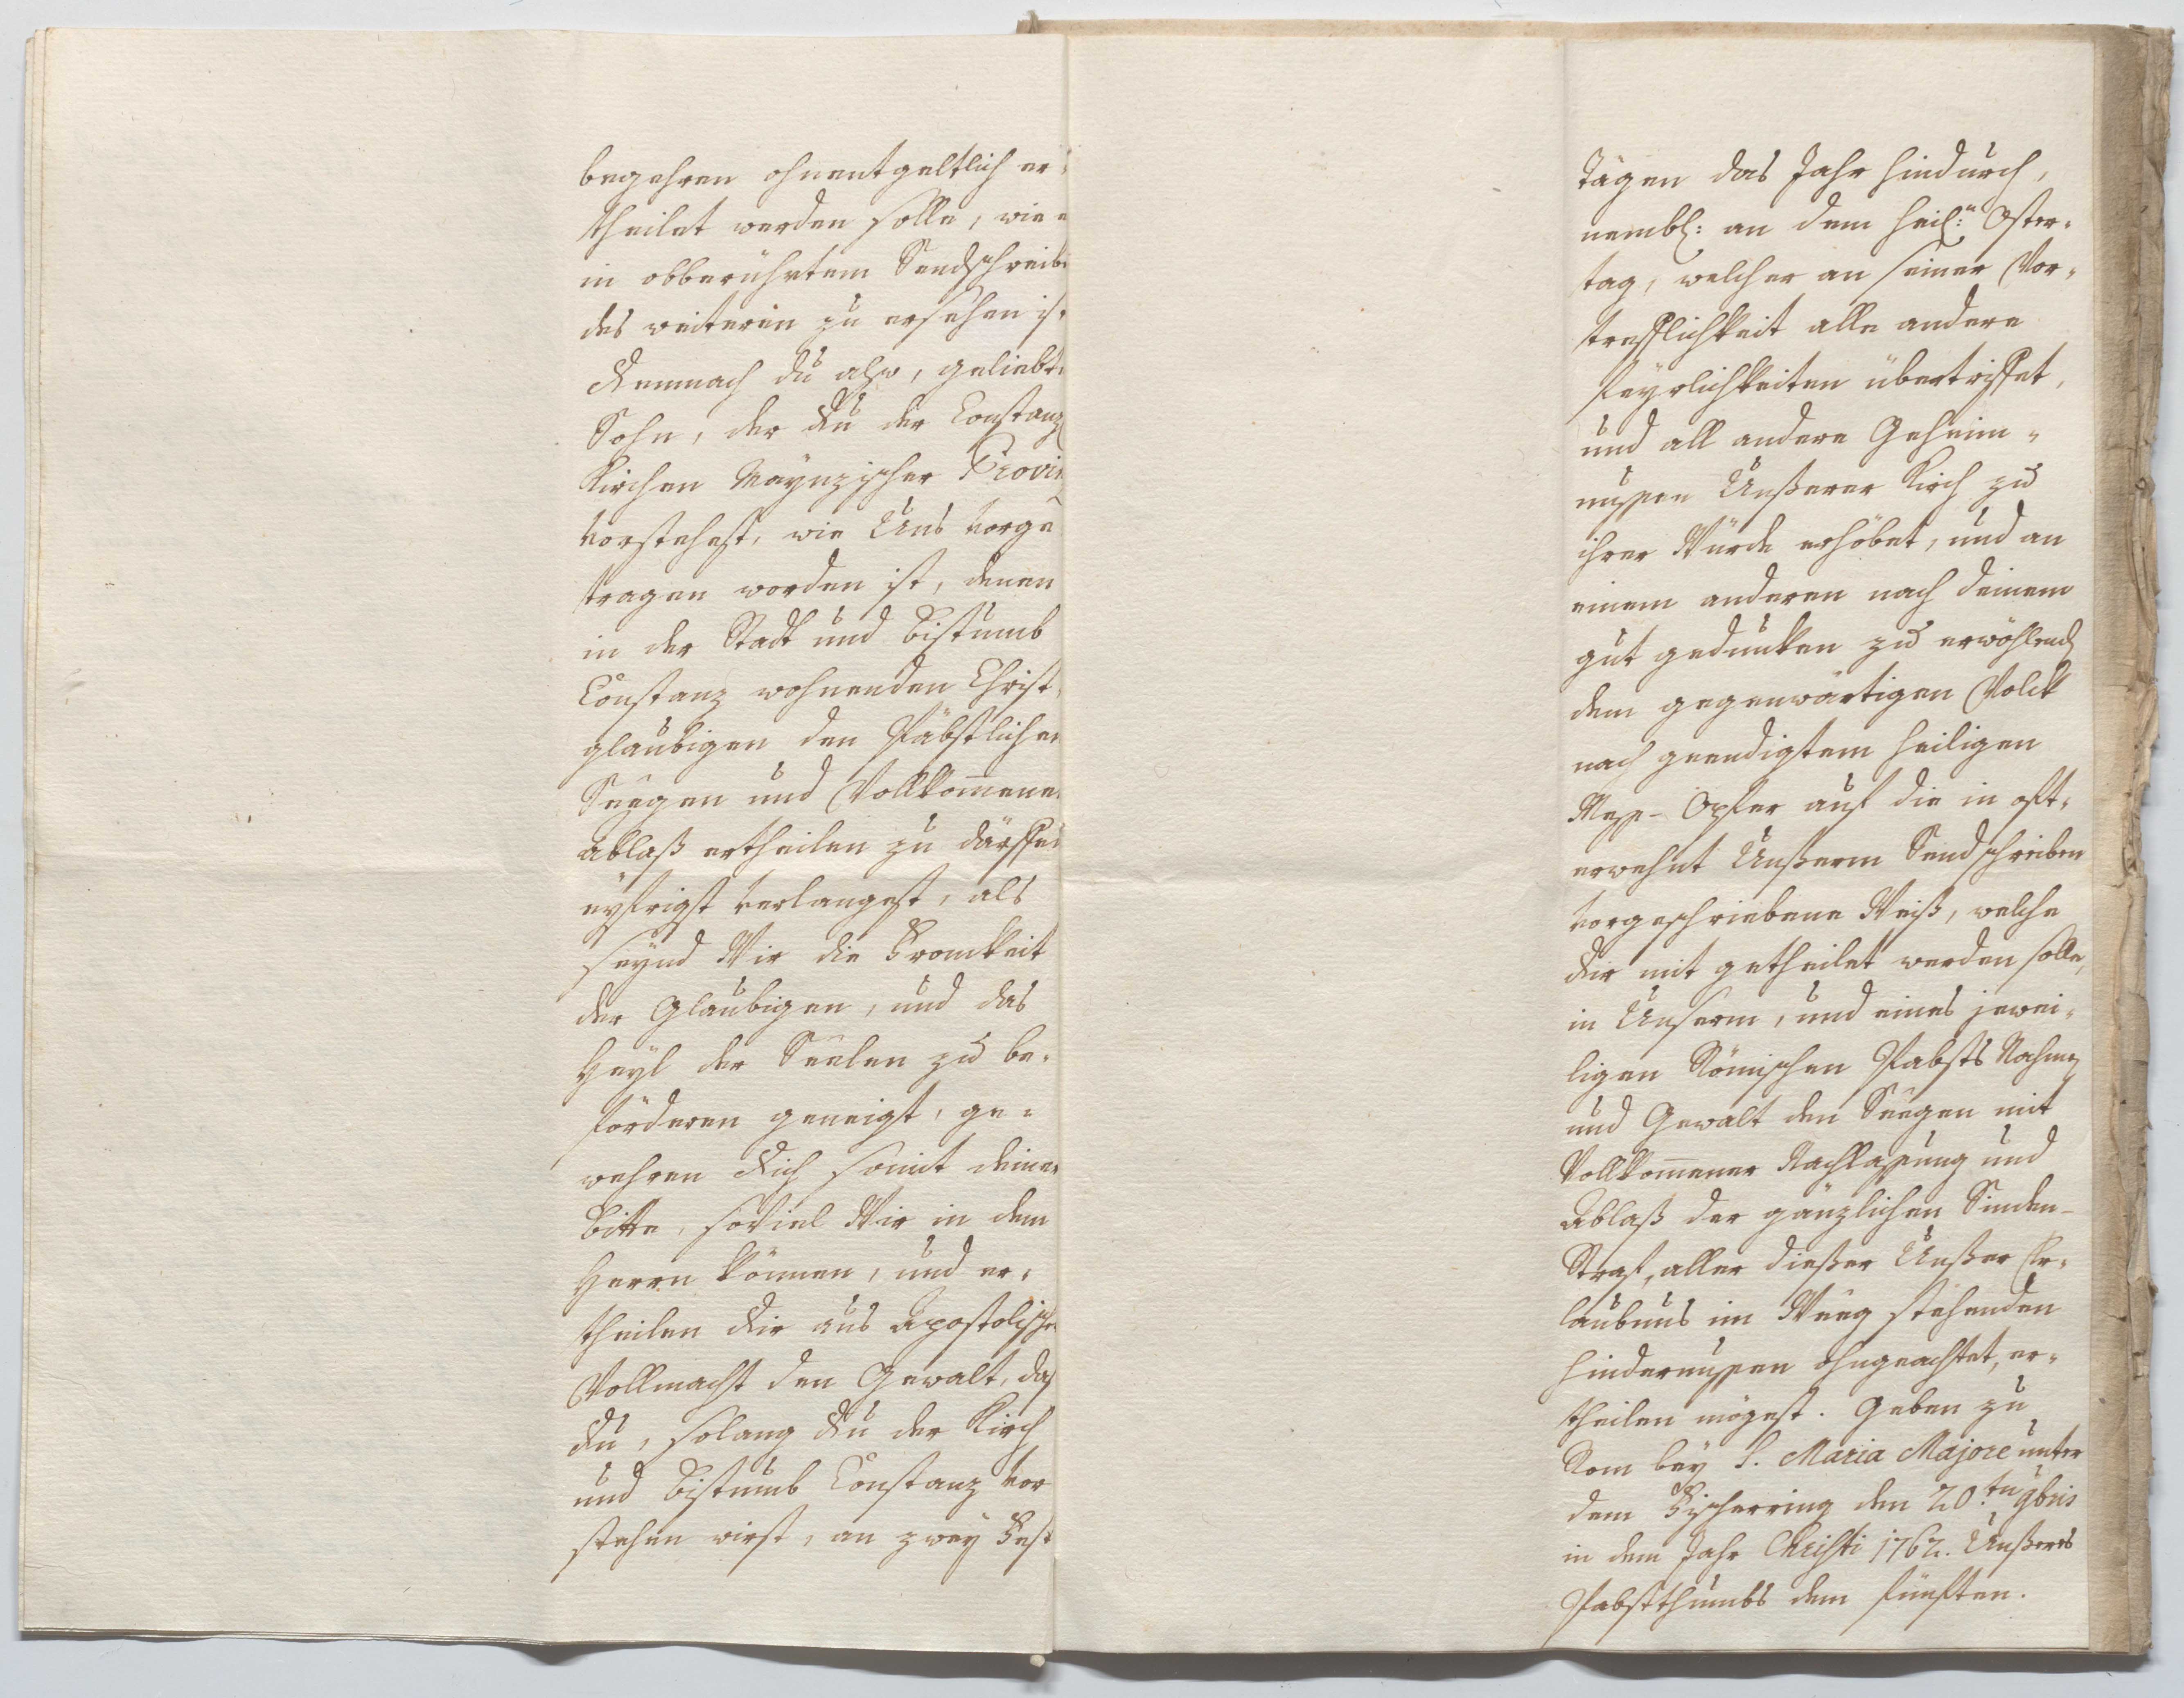 begehren ohnentgeltlich er¬
theilet werden solle, wie
in obberührtem Sendschreibe
des weiteren zu ersehen ist
Demnach du also, geliebte
Sohn, der Du der Constanz
Kirchen Maynzischer Provin
vorstehest, wie Uns vorge
tragen worden ist, denen
in der Statt und Bistumb
Constanz wohnenden Christ¬
glaubigen den Päbstlichen
Seegen und Vollkom̅enen
Ablaß ertheilen zu därffen
eyfrigst verlangest, als
seynd Wir die Fromkeit
der Glaubigen, und das
Heyl der Seelen zu be¬
förderen geneigt, ge¬
wehren Dich somit deiner
Bitte, soviel Wir in dem
Herrn können, und er¬
theilen Dir aus Apostolische
Vollmacht den Gewalt, daß
Du, solang Du der Kirch
und Bistumb Constanz vor
stehen wirst, an zwey Fest
Tägen das Jahr hindurch,
nembl: an dem heil:n Oster¬
tag, welcher an seiner Vor¬
trefflichkeit alle andere
feyrlichkeiten übertriffet,
und all andere Geheim¬
nussen Unßerer Kirch zu
ihrer Würde erhöbet, und an
einem anderen nach deinem
gut gedunken zu erwöhlend
dem gegenwärtigen Volck
nach geendigtem heiligen
Mess-Opfer auf die in oft¬
erwehnt Unßerm Sendschreiben
vorgeschriebene Weiß, welche
Dir mit getheilet werden solle,
in Unserm, und eines jewei¬
ligen Römischen Pabsts Nahmen
und Gewalt den Seegen mit
Vollkom̅ener Nachlassung und
Ablaß der gänzlichen Sinden-
Straf, aller dießer Unßer Er¬
laubnus im Weeg stehenden
hindernussen ohngeachtet, er¬
theilen mögest. Geben zu
Rom bey S. Maria Majore unter
dem Fischerring den 20.ten 9bris
in dem Jahr Christi 1762. Unßeres
Pabstthumbs dem fünften.